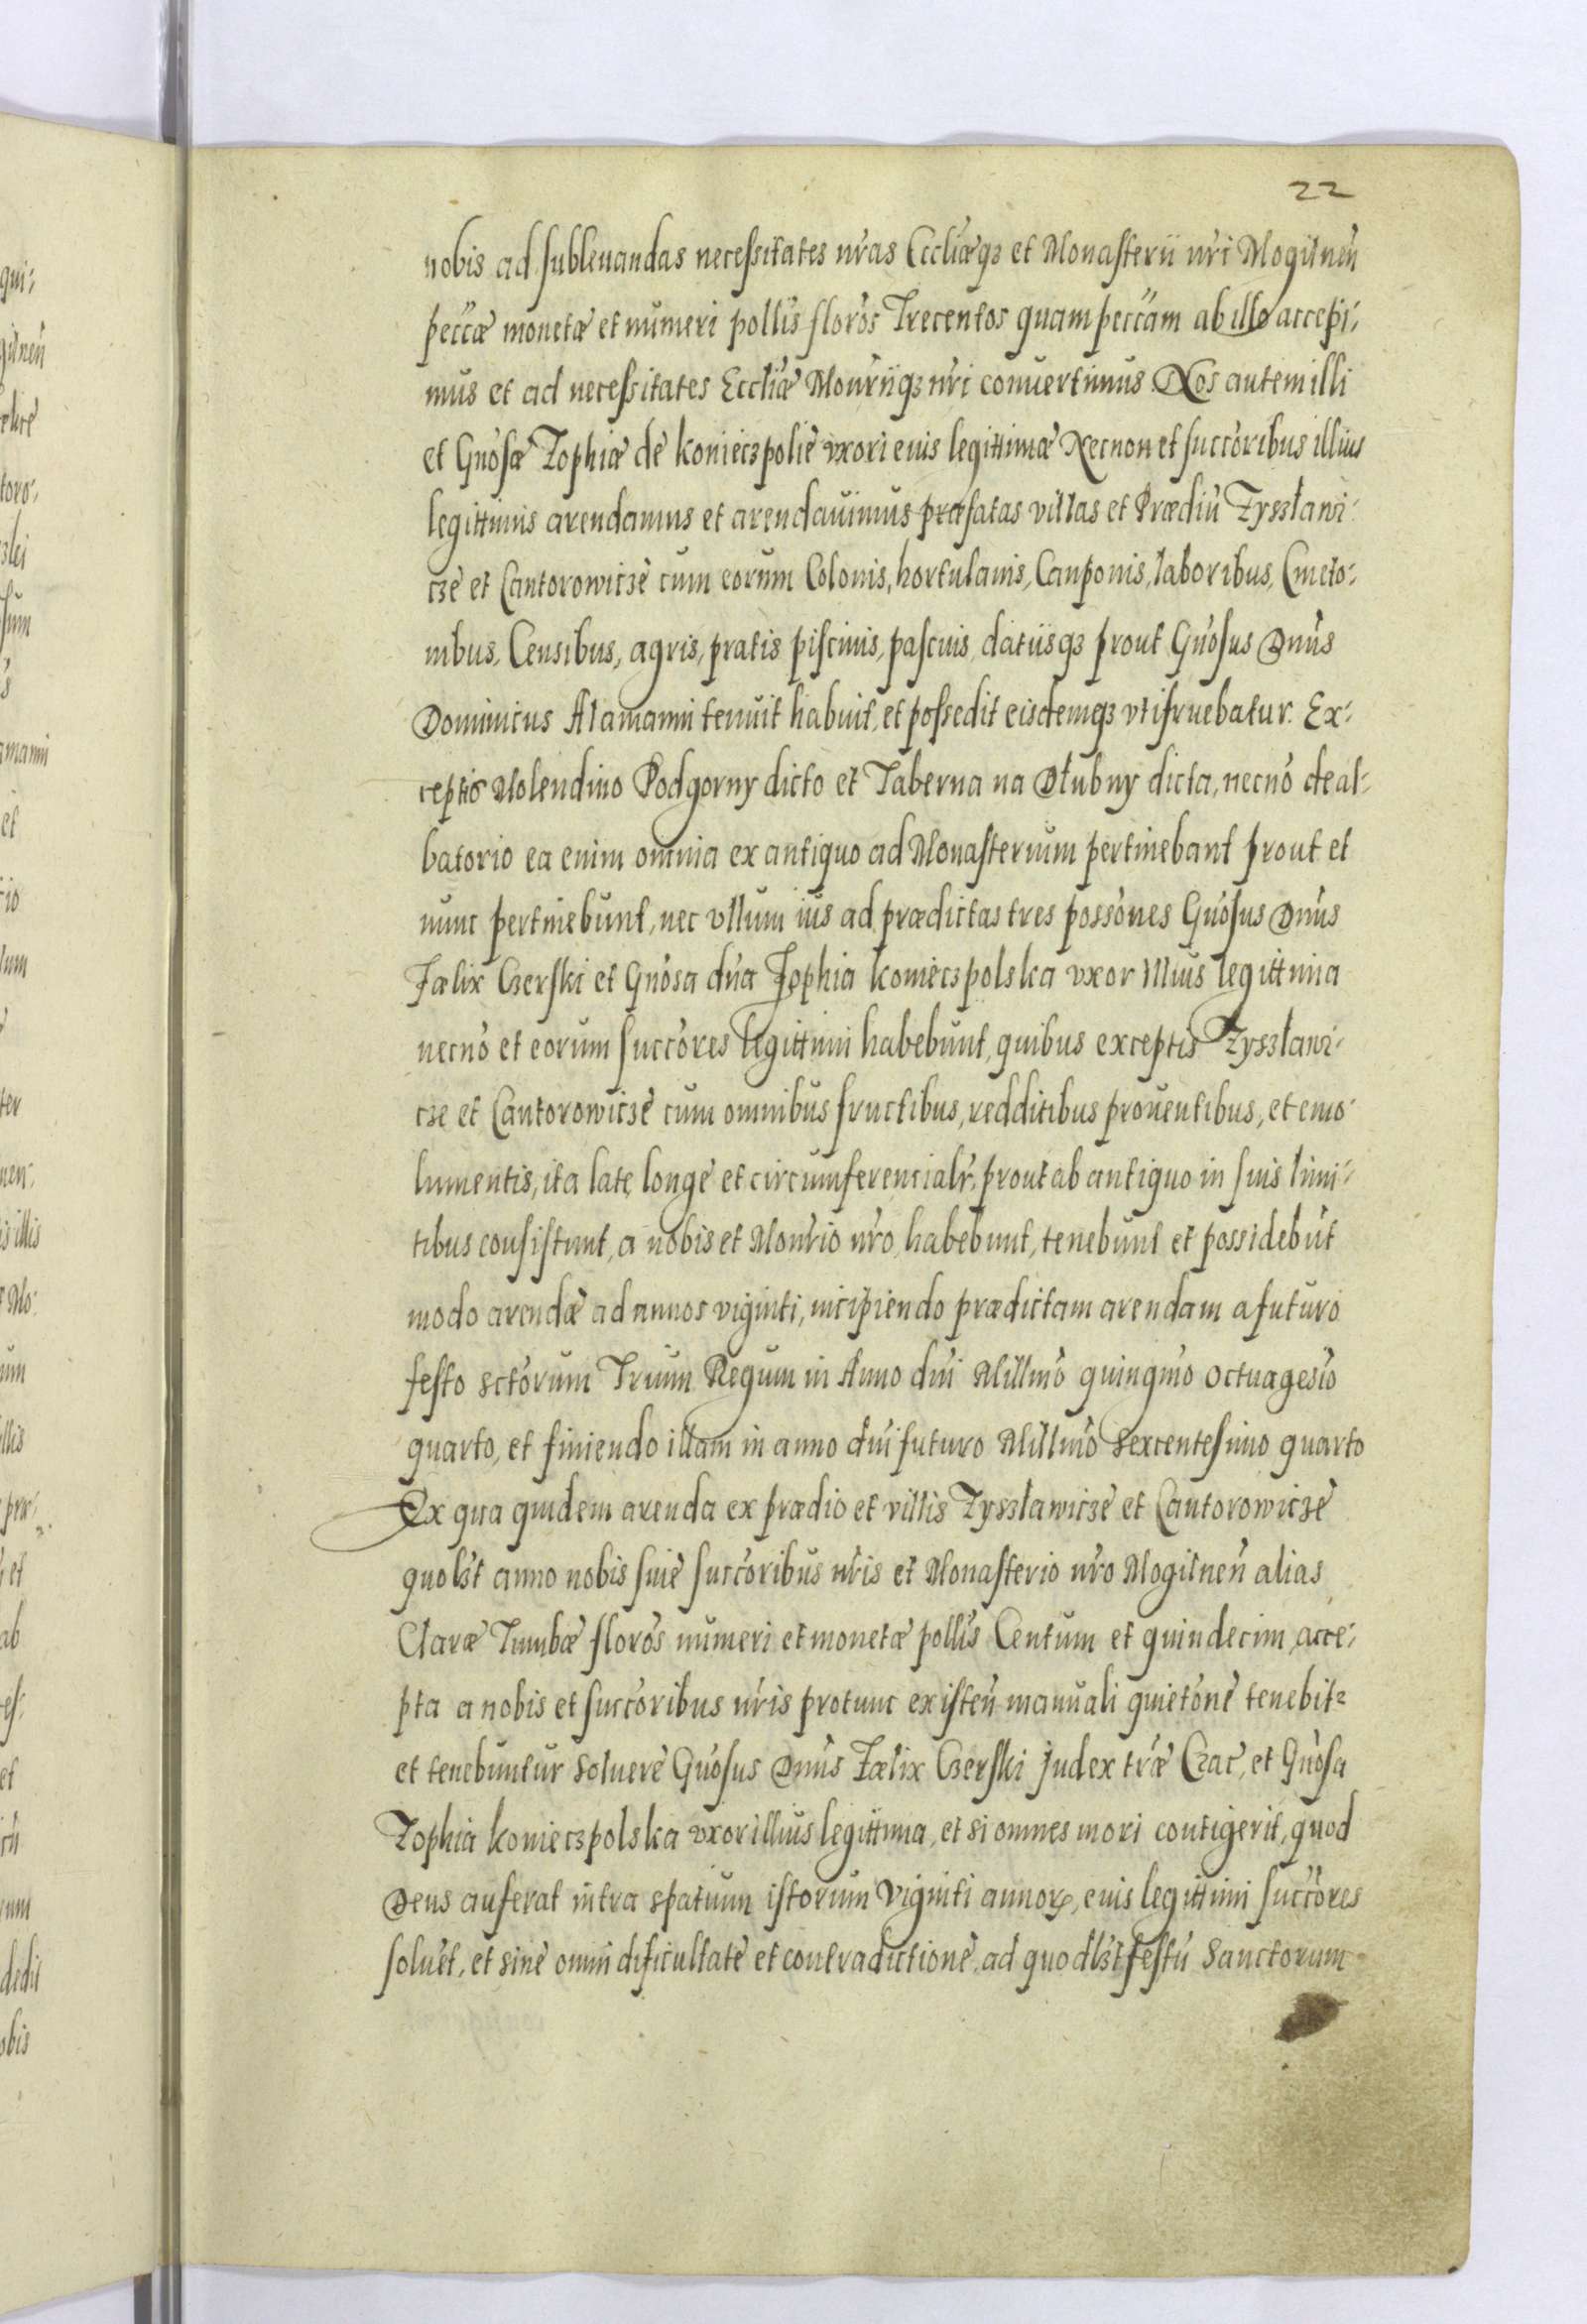 22
nobis ad subleuandas necessitates nr̃as Eccliæq3 et Monasterii nr̃i Mogilneñ
peccæ monetæ et numeri pollis florõs Trecentos quam peccam ab illo accepi:
mus et ad necessitates Eccliæ Monr̃iiq3 nr̃i conuertimus. Nos autem illi
et Gnõsæ Zophiæ de koniecz polie vxori euis legittimæ Necnon et succõribus illius
legittimis arendamus et arendauimus præfatas villas et Prædiũ Zyszławi:
cze et Cantorowicze cum eorum Colonis, hortulanis, Cauponis, laboribus, Cmeto:
nibus, Censibus, agris, pratis piscinis, pascuis, datiisq3 prout Gnõsus Dnũs
Dominicus Alamanni tenuit habuit, et possedit eisdemq3 vtifruebatur. Ex:
ceptis Molendino Podgorny dicto et Taberna na Dłubny dicta, necnõ deal:
batorio ea enim omnia ex antiquo ad Monasterium pertinebant prout et
nunc pertinebunt, nec vllum ius ad prædictas tres possõnes Gnõsus Dnũs
Fælix Czerski et Gnõsa dña Zophia koniecz polska vxor illius legittima
necnõ et eorum succõres legittimi habebunt, quibus exceptis Zyszławi:
cze et Cantorowicze cum omnibus fructibus, redditibus prouentibus, et emo:
lumentis, ita late, longe et circumferencialr̃, prout ab antiquo in suis limi:
tibus consistunt, a nobis et Monr̃io nr̃o, habebunt, tenebunt et possidebũt
modo arendæ ad annos viginti, incipiendo prædictam arendam a futuro
festo sctõrum Trium Regum in Anno dñi Millmõ quingmõ octuagesiõ
quarto, et finiendo illam in anno dñi futuro Millmõ Sexcentesimo quarto
Ex qua quidem arenda ex prædio et villis Zyszławicze et Cantorowicze
quolzt anno nobis siue succõribus nr̃is et Monasterio nr̃o Mogilneñ alias
Claræ Tumbæ florõs numeri et monetæ pollis Centum et quindecim, acce:
pta a nobis et succõribus nr̃is protunc existeñ manuali quietõne tenebit2
et tenebuntur Soluere Gnõsus Dnũs Fælix Czerski Judex tr̃æ Czer̃, et Gnõsa
Zophia koniecz polska vxor illius legittima, et si omnes mori contigerit, quod
Deus auferat intra spatium istorum Viginti annoꝝ, euis legittimi succõres
soluẽt, et sine omni dificultate et contradictione, ad quodlzt festũ Sanctorum